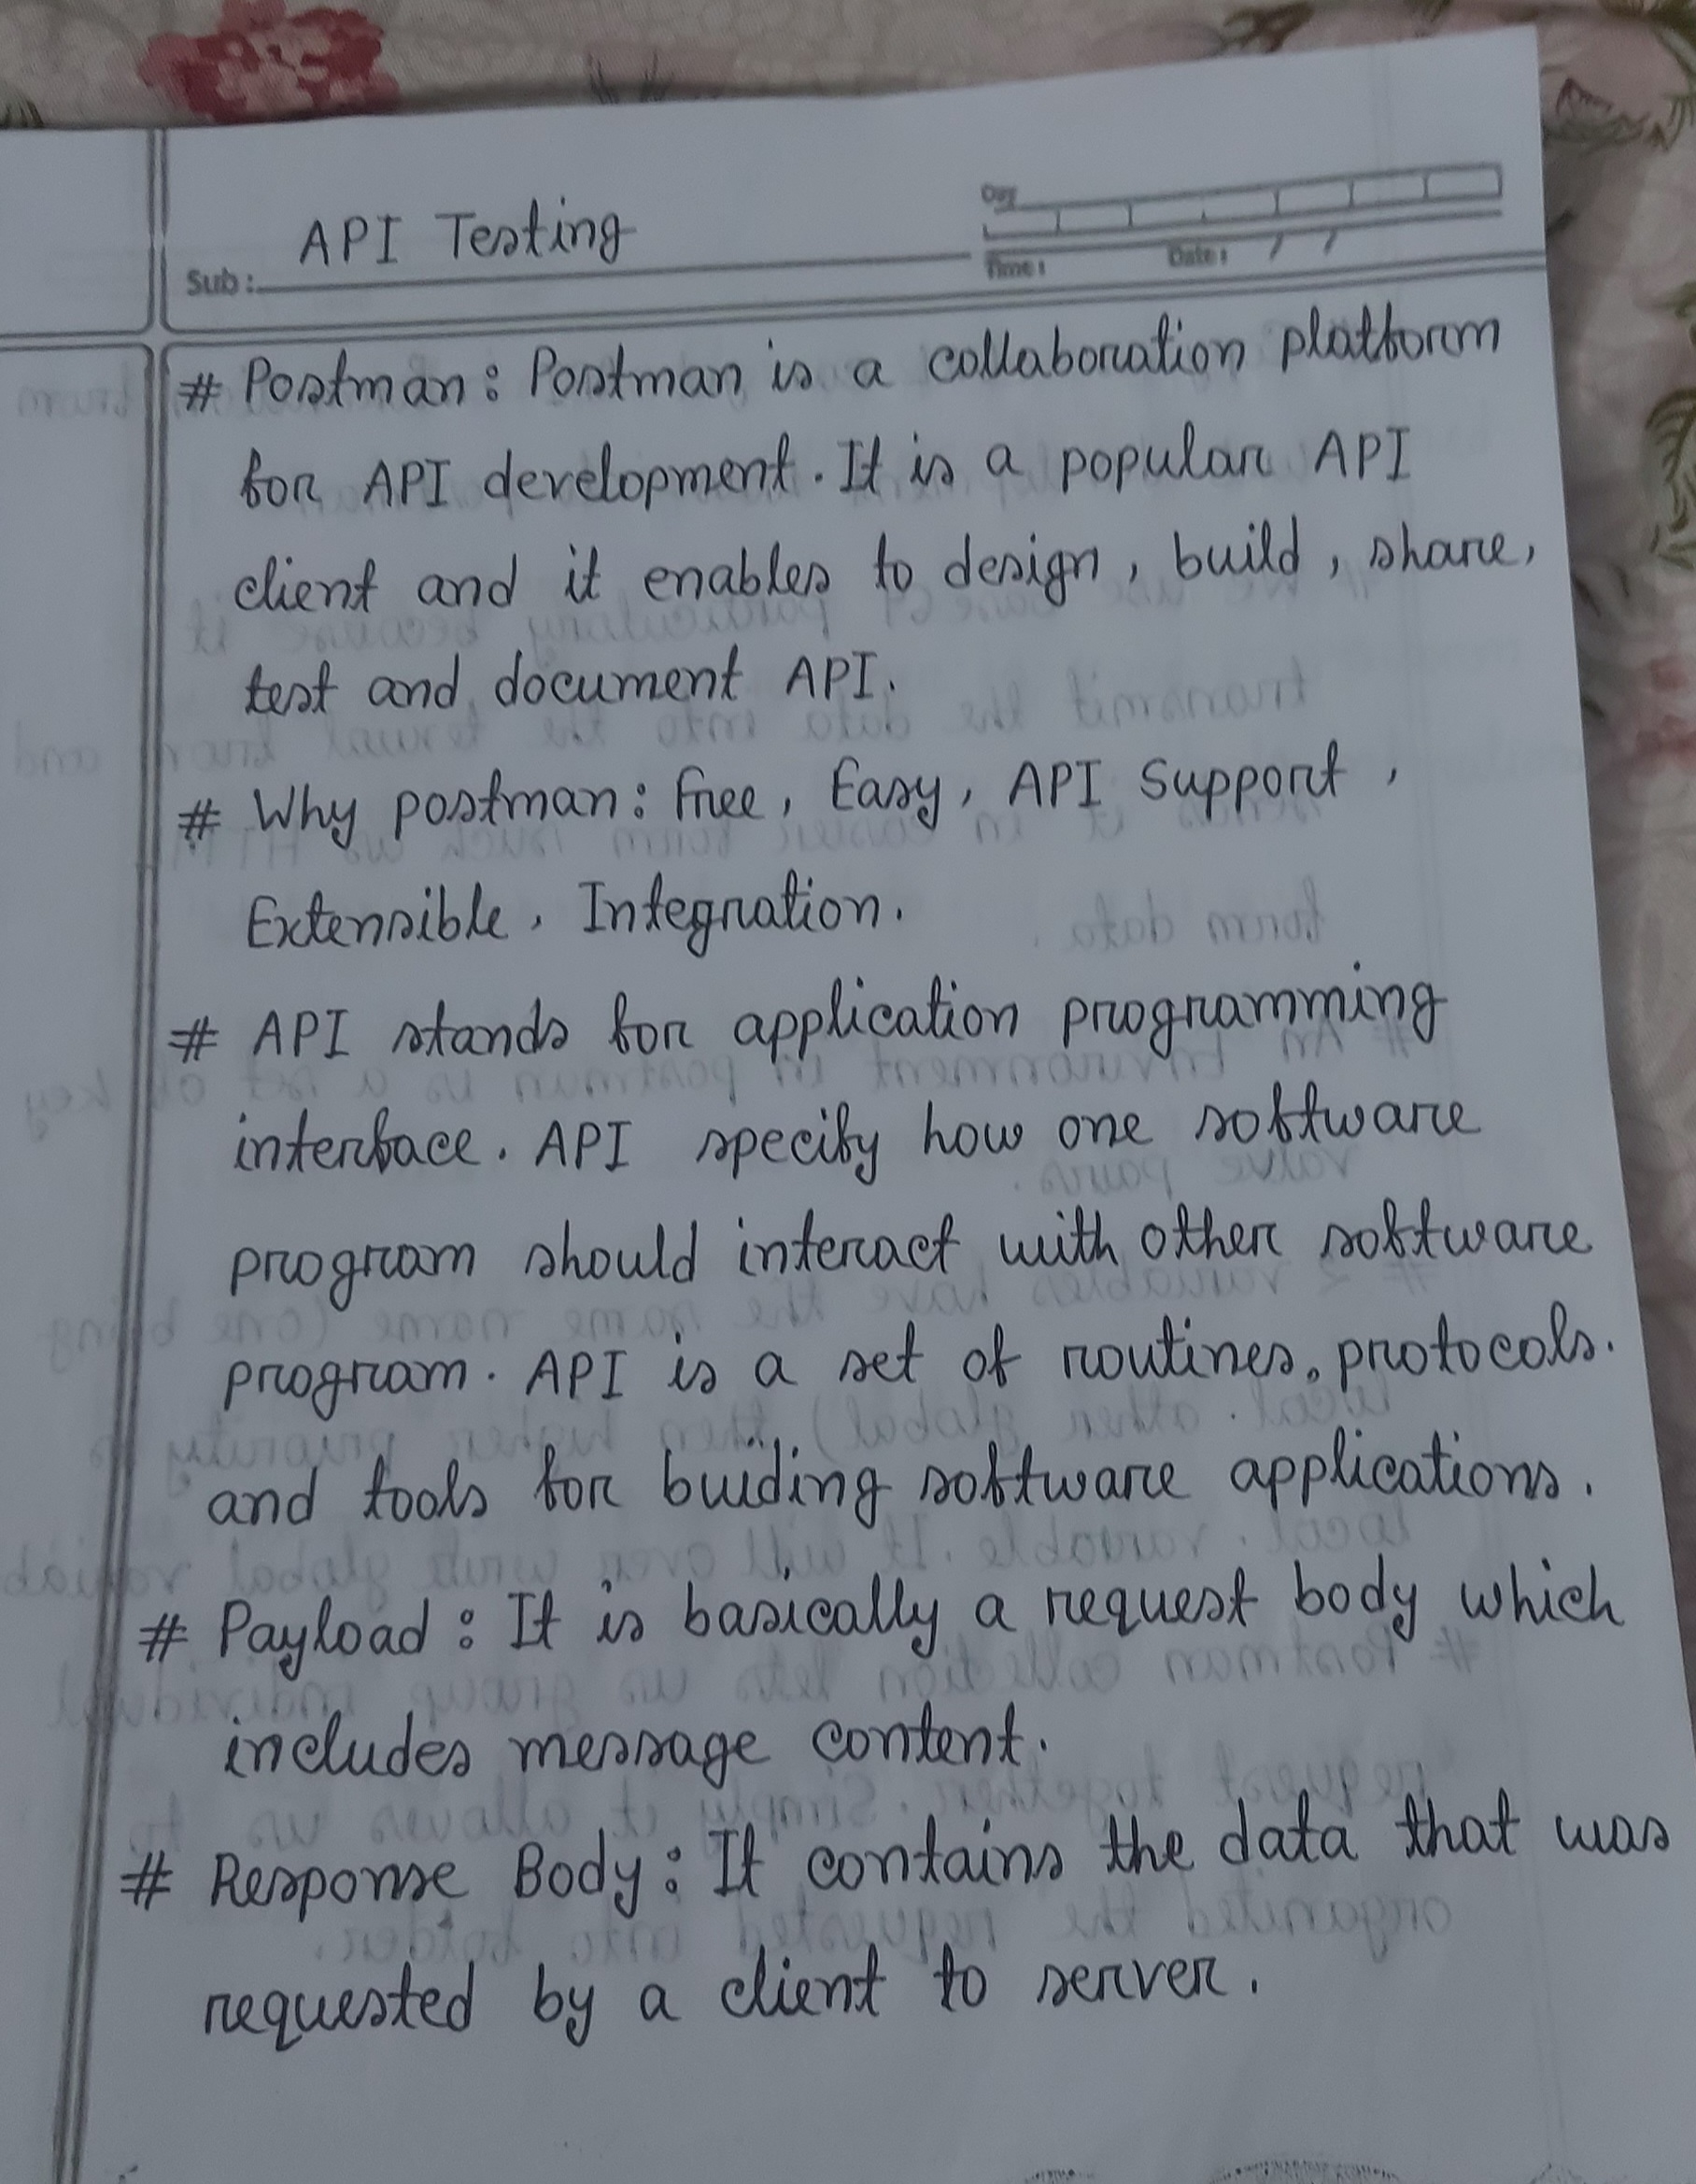 API Testing
Sub :
Day
Time :
Date : / /
# Postman : Postman is a collaboration platform
for API development. It is a popular API
client and it enables to design, build, share,
test and document API.
# Why postman : Free, Easy, API Support,
Extensible, Integration.
# API stands for application programming
interface. API specify how one software
program should interact with other software
program. API is a set of routines, protocols.
and tools for buiding software applications.
# Payload : It is basically a request body which
includes message content.
# Response Body : It contains the data that was
requested by a client to server.